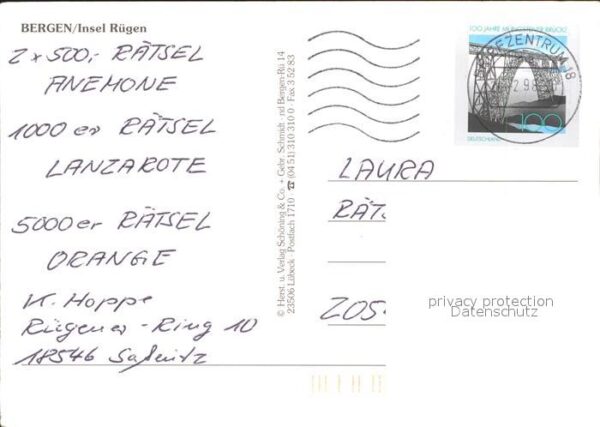 BERGEN/Insel Rügen
2 x 500,- RÄTSEL
ANEMONE
1000 er RÄTSEL
LANZAROTE
5000 er RÄTSEL
ORANGE
K. Hoppe
Rügener-Ring 10
18546 Saßnitz
© Herst. u. Verlag Schöning & Co. + Gebr. Schmidt · und Bergen-Rü 14
23506 Lübeck · Postfach 1710 · ☎ (04 51) 310 310 0 · Fax 3 52 83
100 JAHRE MÜNGSTENER BRÜCKE
100
DEUTSCHLAND
LAURA
RÄT
205
privacy protection
Datenschutz